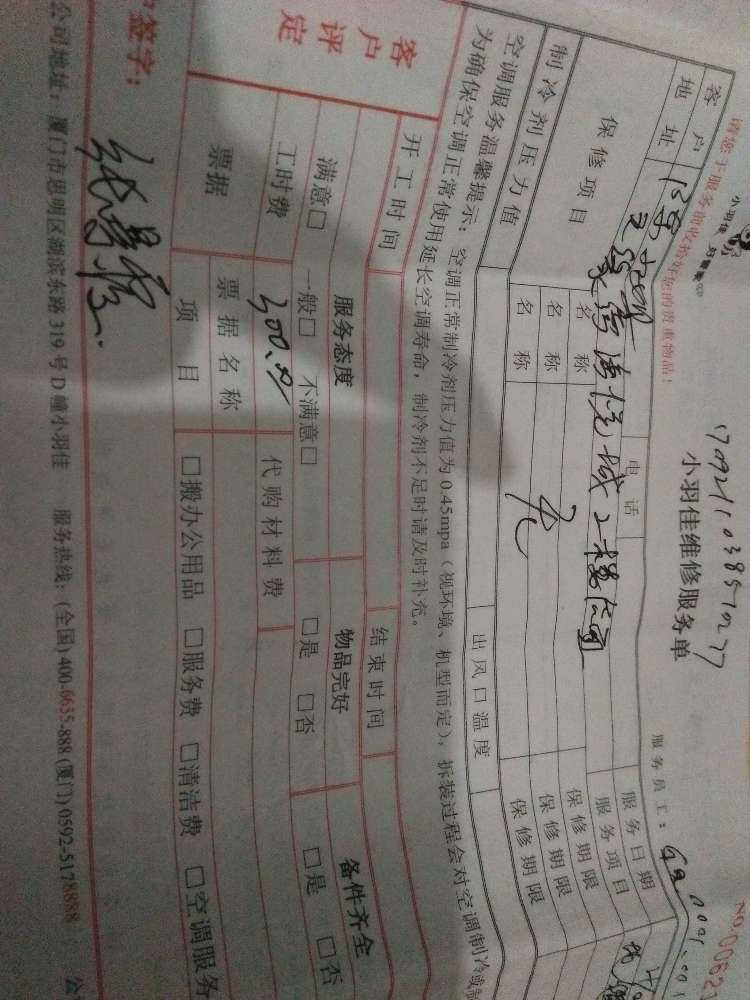 小羽佳
请您于服务前收拾好您的贵重物品!
1709211038510277
小羽佳维修服务单
NO:0062
服务员工:
客户地址
电话
服务日期
服务项目
二楼
保修项目
名称
保修期限
名称
保修期限
名称
保修期限
制冷剂压力值
出风口温度
空调服务温馨提示:空调正常制冷剂压力值为0.45mpa(视环境、机型而定),拆装过程会对空调制冷或制
为确保空调正常使用延长空调寿命,制冷剂不足时请及时补充。
开工时间
结束时间
客户评定
服务态度
物品完好
备件齐全
满意□ 一般□ 不满意□
□是 □否
□是 □否
工时费
300.00
代购材料费
票据
票据名称
项目
□搬办公用品 □服务费 □清洁费 □空调服务
签字:
公司地址:厦门市思明区湖滨东路319号D幢小羽佳 服务热线:(全国)400-6655-888 (厦门)0592-5178888 公